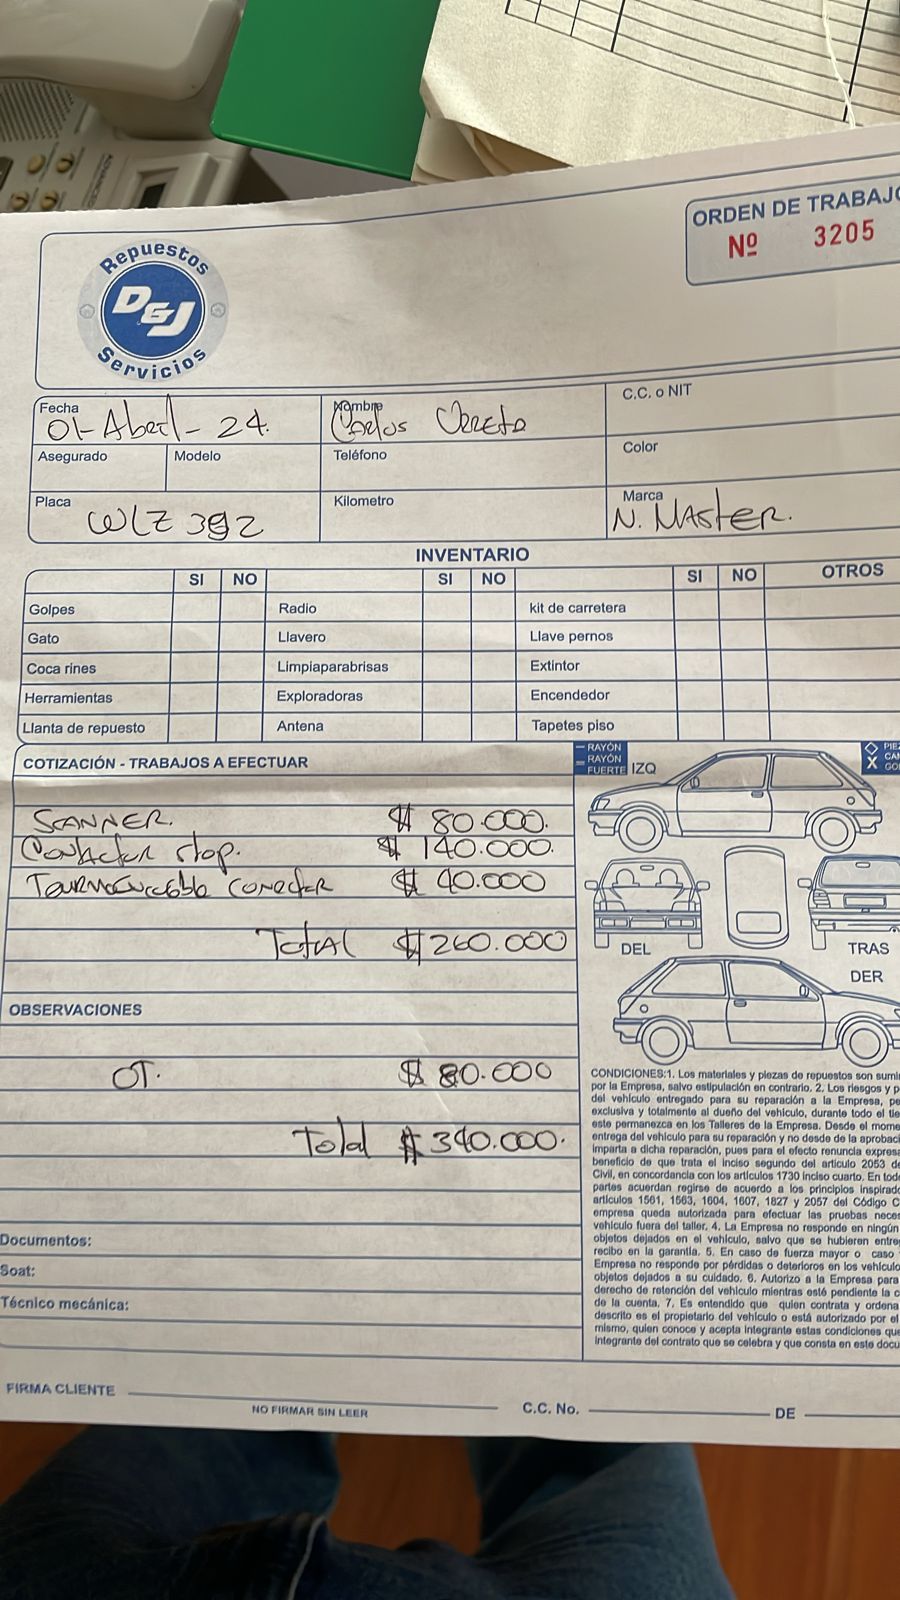 ORDEN DE TRABAJO
Nº 3205
Repuestos
D&J
Servicios
Fecha 01-Abril-24.
Nombre Carlos
C.C. o NIT
Asegurado Modelo Teléfono Color
Placa WLZ 392
Kilometro
Marca N. MASTER.
INVENTARIO
SI NO SI NO SI NO OTROS
Golpes Radio kit de carretera
Gato Llavero Llave pernos
Coca rines Limpiaparabrisas Extintor
Herramientas Exploradoras Encendedor
Llanta de repuesto Antena Tapetes piso
COTIZACIÓN - TRABAJOS A EFECTUAR
RAYÓN
RAYÓN
FUERTE IZQ
X
SCANNER. $ 80.000.
stop. $ 140.000.
$ 40.000
Total $ 260.000
DEL TRAS
DER
OBSERVACIONES
OT. $ 80.000
Total $ 340.000.
CONDICIONES:1. Los materiales y piezas de repuestos son sumi
por la Empresa, salvo estipulación en contrario. 2. Los riesgos y p
del vehículo entregado para su reparación a la Empresa, pe
exclusiva y totalmente al dueño del vehículo, durante todo el tie
este permanezca en los Talleres de la Empresa. Desde el mome
entrega del vehículo para su reparación y no desde de la aprobaci
imparta a dicha reparación, pues para el efecto renuncia expresa
beneficio de que trata el inciso segundo del articulo 2053 de
Civil, en concordancia con los artículos 1730 inciso cuarto. En tod
partes acuerdan regirse de acuerdo a los principios inspirad
artículos 1561, 1563, 1604, 1607, 1827 y 2057 del Código C
empresa queda autorizada para efectuar las pruebas nece
vehículo fuera del taller. 4. La Empresa no responde en ningún
objetos dejados en el vehículo, salvo que se hubieren entre
recibo en la garantía. 5. En caso de fuerza mayor o caso
Empresa no responde por pérdidas o deterioros en los vehículo
objetos dejados a su cuidado. 6. Autorizo a la Empresa para
derecho de retención del vehículo mientras esté pendiente la c
de la cuenta. 7. Es entendido que quien contrata y ordena
descrito es el propietario del vehículo o está autorizado por el
mismo, quien conoce y acepta integrante estas condiciones que
integrante del contrato que se celebra y que consta en este docu
Documentos:
Soat:
Técnico mecánica:
FIRMA CLIENTE
NO FIRMAR SIN LEER
C.C. No. DE